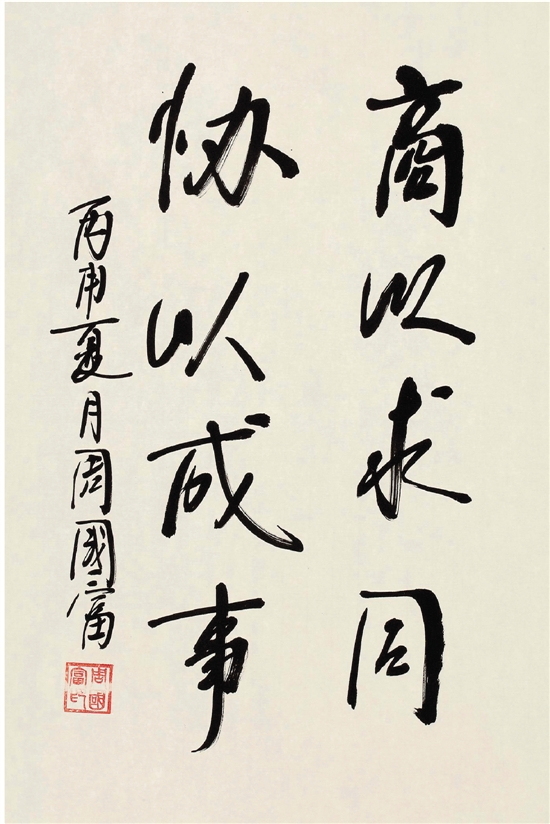 商以求同
协以成事
丙申夏月周國富
周國富印